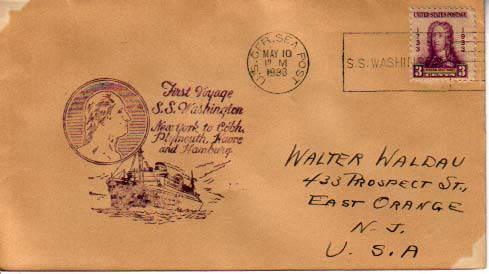 UNITED STATES POSTAGE
1733
1933
3 3
CENTS
U.S. GER. SEA POST
MAY 10
M
1933
S.S. WASHIN
First Voyage
S.S. Washington
New York to Cobh,
Plymouth, Havre
and Hamburg
WALTER WALDAU
433 PROSPECT ST.,
EAST ORANGE
N. J.
U. S. A